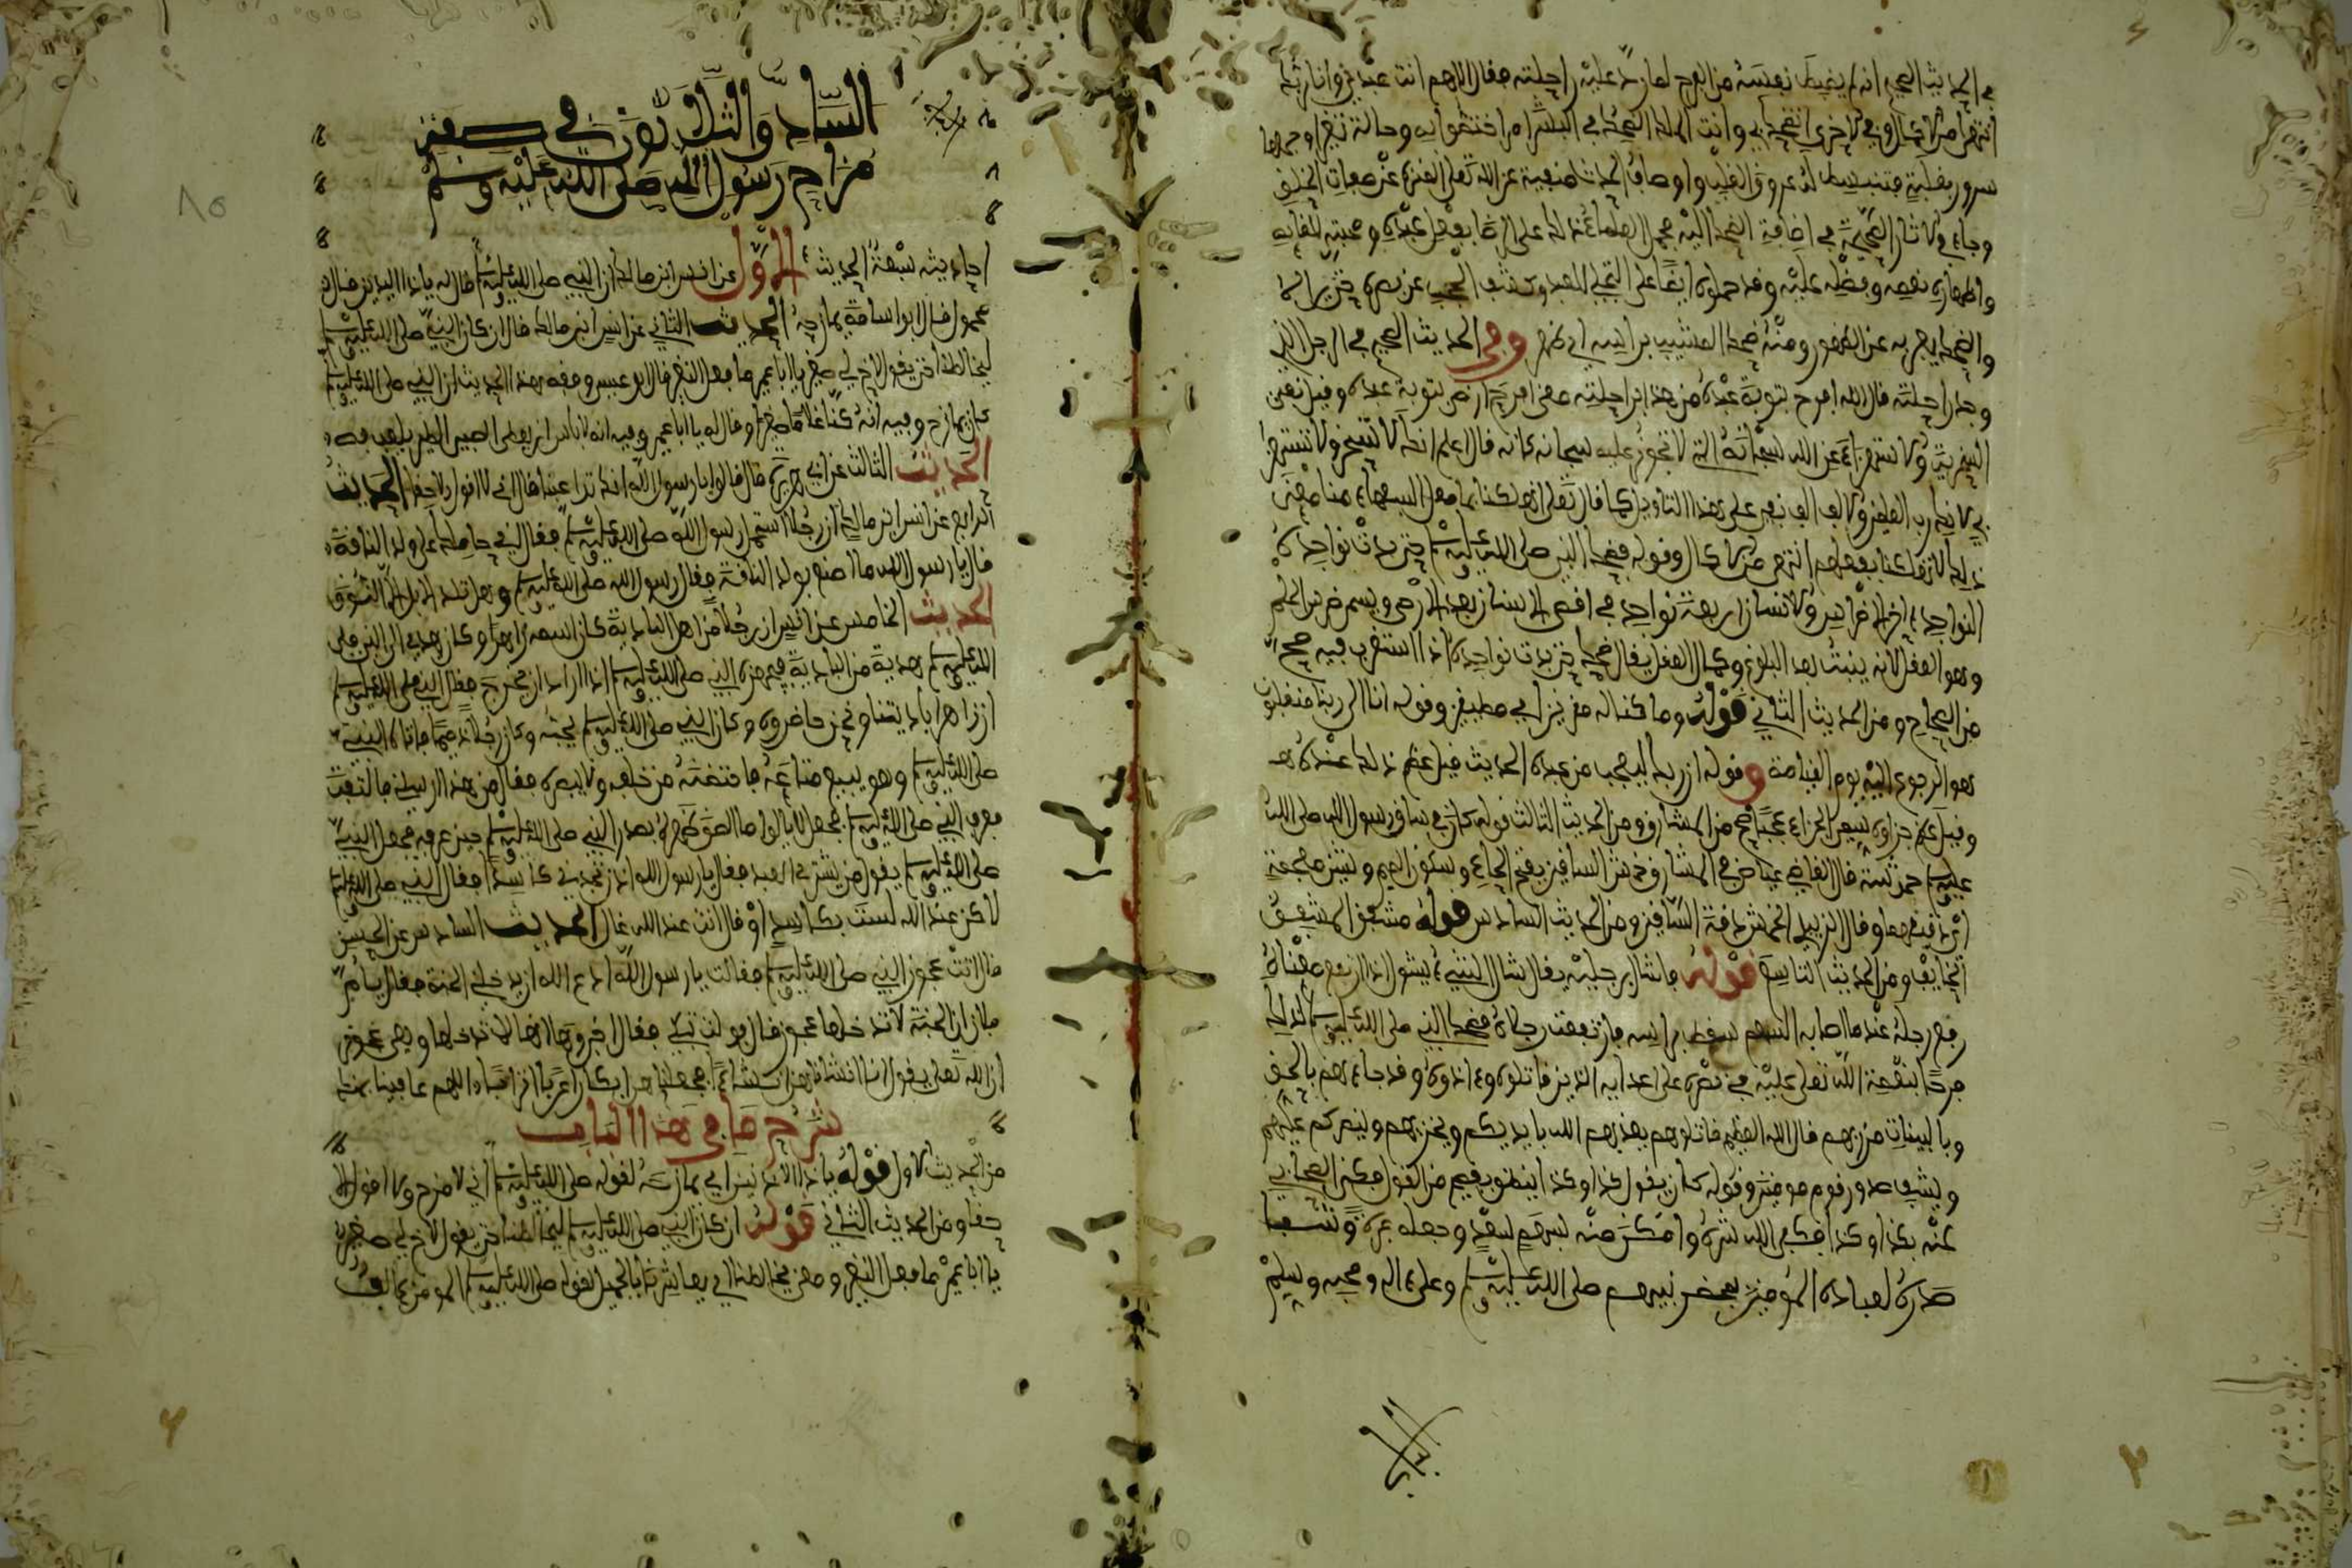 في الحديث الصحيح انه لم يضبط نفسه من الفرح لما رد عليه راحلته فقال اللهم انت عبدي وانا ربك
انتهى من الاكمال وفي الاخرى اتضحك بي وانت الملك الضحك في البشر امر اختصوا به وحالة تغير اوجبها
سرور بقلبه فتنبسط له عروق القلب واوصاف الحدث منفية عن الله تعلى المنزه عن صفات الخلق
وجاء في الاثار الصحيحة في اضافة الضحك اليه فحمل العلماء ذلك على الرضا بفعل عبده ومحبته للقائه
واظهاره نعمه وفضله عليه وقد حملوه ايضا على التجلي للعبد وكشف الحجب عن بصره حتى يراه
والضحك يعبر به عن الظهور ومنه ضحك المشيب براسه اي ظهر وفي الحديث الصحيح في الرجل الذي
وجد راحلته قال لله افرح بتوبة عبده من هذا براحلته معنى افرح ارضى بتوبة عبده وقيل نفى
السخرية والاستهزاء عن الله سبحانه التي لا تجوز عليه سبحانه كانه قال اعلم انك لا تسخر ولا تستهزئ
بي لانك رب العلمين والالف الف نفي على هذا التاويل كما قال تعلى اتهلكنا بما فعل السفهاء منا معنى
ذلك لانك لا تهلكنا بفعلهم انتهى من الاكمال وقوله فضحك النبي صلى الله عليه وسلم حتى بدت نواجذه
النواجذ اخر الاضراس وللانسان اربعة نواجذ في اقصى الاسنان بعد الارحى ويسمى ضرس الحلم
وهو العقل لانه ينبت بعد البلوغ وكمال العقل يقال ضحك حتى بدت نواجذه اذا استغرب فيه صح
من الصحاح ومن الحديث الثاني قوله وما كنا له مقرنين اي مطيقين وقوله انا الى ربنا منقلبون
هو الرجوع اليه يوم القيامة وقوله ان ربك ليعجب من عبده الحديث قيل عظم ذلك عنده
وقيل عظم جزاؤه سمي الجزاء عجبا صح من المشارق ومن الحديث الثالث قوله كان في ساق رسول الله صلى الله
عليه وسلم حموشة قال القاضي عياض في المشارق حمش الساقين بفتح الحاء وسكون الميم وشين معجمة
اي دقيقهما وقال الزبيدي الحمش دقة الساقين ومن الحديث السادس قوله مشفق المشفق
الخايف ومن الحديث التاسع قوله فشال برجليه يقال شال الشيء يشول اذا ارتفع معناه
رفع رجله عند ما اصابه السهم سقط براسه فارتفعت رجلاه فضحك النبي صلى الله عليه وسلم لذلك
فرحا بنعمة الله تعلى عليه في نصره على اعدايه الذين قاتلوه واذوه وقد جاءهم بالحق
وبالبينات من ربهم قال الله العظيم قاتلوهم يعذبهم الله بايديكم ويخزهم وينصركم عليهم
ويشف صدور قوم مومنين وقوله كان يقول كذا وكذا ينطق بقبيح من القول فكنى الصحابي
عنه بكذا وكذا فكفى الله شره وامكن منه بسهم سعد وجعله عبرة وشفا
صدره لعباده المومنين ببغض نبيهم صلى الله عليه وسلم وعلى اله وصحبه وسلم
السادس والثلاثون في صفة
مزاح رسول الله صلى الله عليه وسلم
احاديثه سبعة الحديث الاول عن انس ابن مالك ان النبي صلى الله عليه وسلم قال له ياذا الاذنين قال
محمود قال ابو اسامة يمازحه الحديث الثاني عن انس ابن مالك قال ان كان النبي صلى الله عليه وسلم
ليخالطنا حتى يقول لاخ لي صغير يا ابا عمير ما فعل النغير قال ابو عيسى وفقه هذا الحديث ان النبي صلى الله عليه وسلم
كان يمازح وفيه انه كنا غلاما صغيرا وقال له يا ابا عمير وفيه انه لا باس ان يعطى الصبي الطير يلعب به
الحديث الثالث عن ابي هريرة قال قالوا يا رسول الله انك تداعبنا قال اني لا اقول الا حقا الحديث
الرابع عن انس ابن مالك ان رجلا استحمل رسول الله صلى الله عليه وسلم فقال اني حاملك على ولد الناقة
قال يا رسول الله ما اصنع بولد الناقة فقال رسول الله صلى الله عليه وسلم وهل تلد الابل الا النوق
الحديث الخامس عن انس ان رجلا من اهل البادية كان اسمه زاهرا وكان يهدي الى النبي صلى
الله عليه وسلم هدية من البادية فيجهزه النبي صلى الله عليه وسلم اذا اراد ان يخرج فقال النبي صلى الله عليه وسلم
ان زاهرا باديتنا ونحن حاضروه وكان النبي صلى الله عليه وسلم يحبه وكان رجلا دميما فاتاه النبي
صلى الله عليه وسلم وهو يبيع متاعه فاحتضنه من خلفه ولا يبصره فقال من هذا ارسلني فالتفت
فعرف النبي صلى الله عليه وسلم فجعل لا يالوا ما الصق ظهره بصدر النبي صلى الله عليه وسلم حين عرفه فجعل النبي
صلى الله عليه وسلم يقول من يشتري العبد فقال يا رسول الله اذن تجدني كاسدا فقال النبي صلى الله عليه وسلم
لاكن عند الله لست بكاسد او قال انت عند الله غال الحديث السادس عن الحسن
قال اتت عجوز النبي صلى الله عليه وسلم فقالت يا رسول الله ادع الله ان يدخلني الجنة فقال يا ام
فلان ان الجنة لا تدخلها عجوز قال فولت تبكي فقال اخبروها انها لا تدخلها وهي عجوز
ان الله تعلى يقول انا انشاناهن انشاء فجعلناهن ابكارا عربا اترابا
شرح ما في هذا الباب
من الحديث الاول قوله ياذا الاذنين اي يمازحه لقوله صلى الله عليه وسلم اني لامزح ولا اقول الا
حقا ومن الحديث الثاني قوله ان كان النبي صلى الله عليه وسلم ليخالطنا حتى يقول لاخ لي صغير
يا ابا عمير ما فعل النغير ومعنى يخالطنا اي يعاشرنا بالجميل لقوله صلى الله عليه وسلم المومن يالف